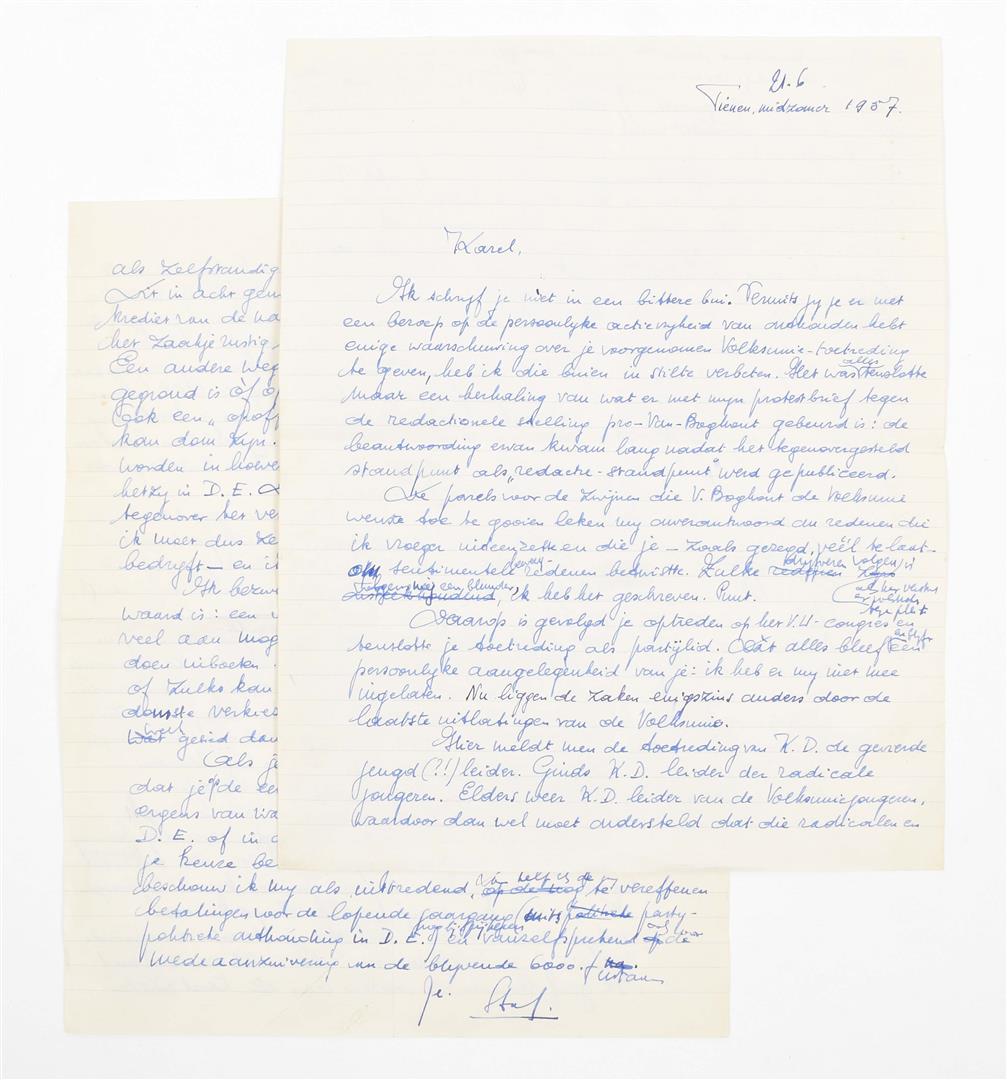 21-6
Tienen, midzomer 1957.
Karel,
Ik schrijf je niet in een bittere bui. Vermits jij je er met
een beroep op de persoonlijke actievrijheid van onthouden hebt
enige waarschuwing over je voorgenomen Volksunie-toetreding
te geven, heb ik die buien in stilte verbeten. Het was alles tenslotte
maar een herhaling van wat er met mijn protestbrief tegen
de redactionele stelling pro-Van-Boghout gebeurd is: de
beantwoording ervan kwam lang nadat het tegenovergesteld
standpunt als "redactie-standpunt" werd gepubliceerd.
De parels voor de zwijnen die V. Boghout de Volksunie
wenste toe te gooien leken mij onverantwoord om redenen die
ik vroeger uiteenzette en die je – zoals gezegd, véél te laat –
om sentimentele redenen betwistte. Zulke drijfveren volgen, is
een blunder, ik heb het geschreven. Punt.
Daarop is gevolgd je optreden op het V.U-congres en
tenslotte je toetreding als partijlid. Dàt alles bleef een
persoonlijke aangelegenheid van je: ik heb er mij niet mee
ingelaten. Nu liggen de zaken enigszins anders door de
laatste uitlatingen van de Volksunie.
Hier meldt men de toetreding van K.D. de gevierde
jeugd (?!) leider. Ginds K.D. leider der radicale
jongeren. Elders weer K.D. leider van de Volksuniejongeren,
waardoor dan wel moet ondersteld dat die radicalen en
als zelfstandig
Dit in acht gen
krediet van de va
het zaakje rustig
Een andere weg
gegrond is òf o
Ook een "opoff
kan dom zijn.
worden in hoeve
hetzij in D.E.
tegenover het ve
ik moet dus ze
bedrijft – en i
Ik bezwe
waard is: een
veel aan mog
doen inboeten
of zulks kan
domste verkies
gebied dan
Als je
dat je de ee
ergens van wa
D.E. of in
je keuze be
beschouw ik mij als uittredend, te vereffenen
betalingen voor de lopende jaargang (mits partij-
politieke onthouding in D.E.) en vanzelfsprekend ook voor de
mede aanzuivering van de blijvende 6000.f
Je. Staf.